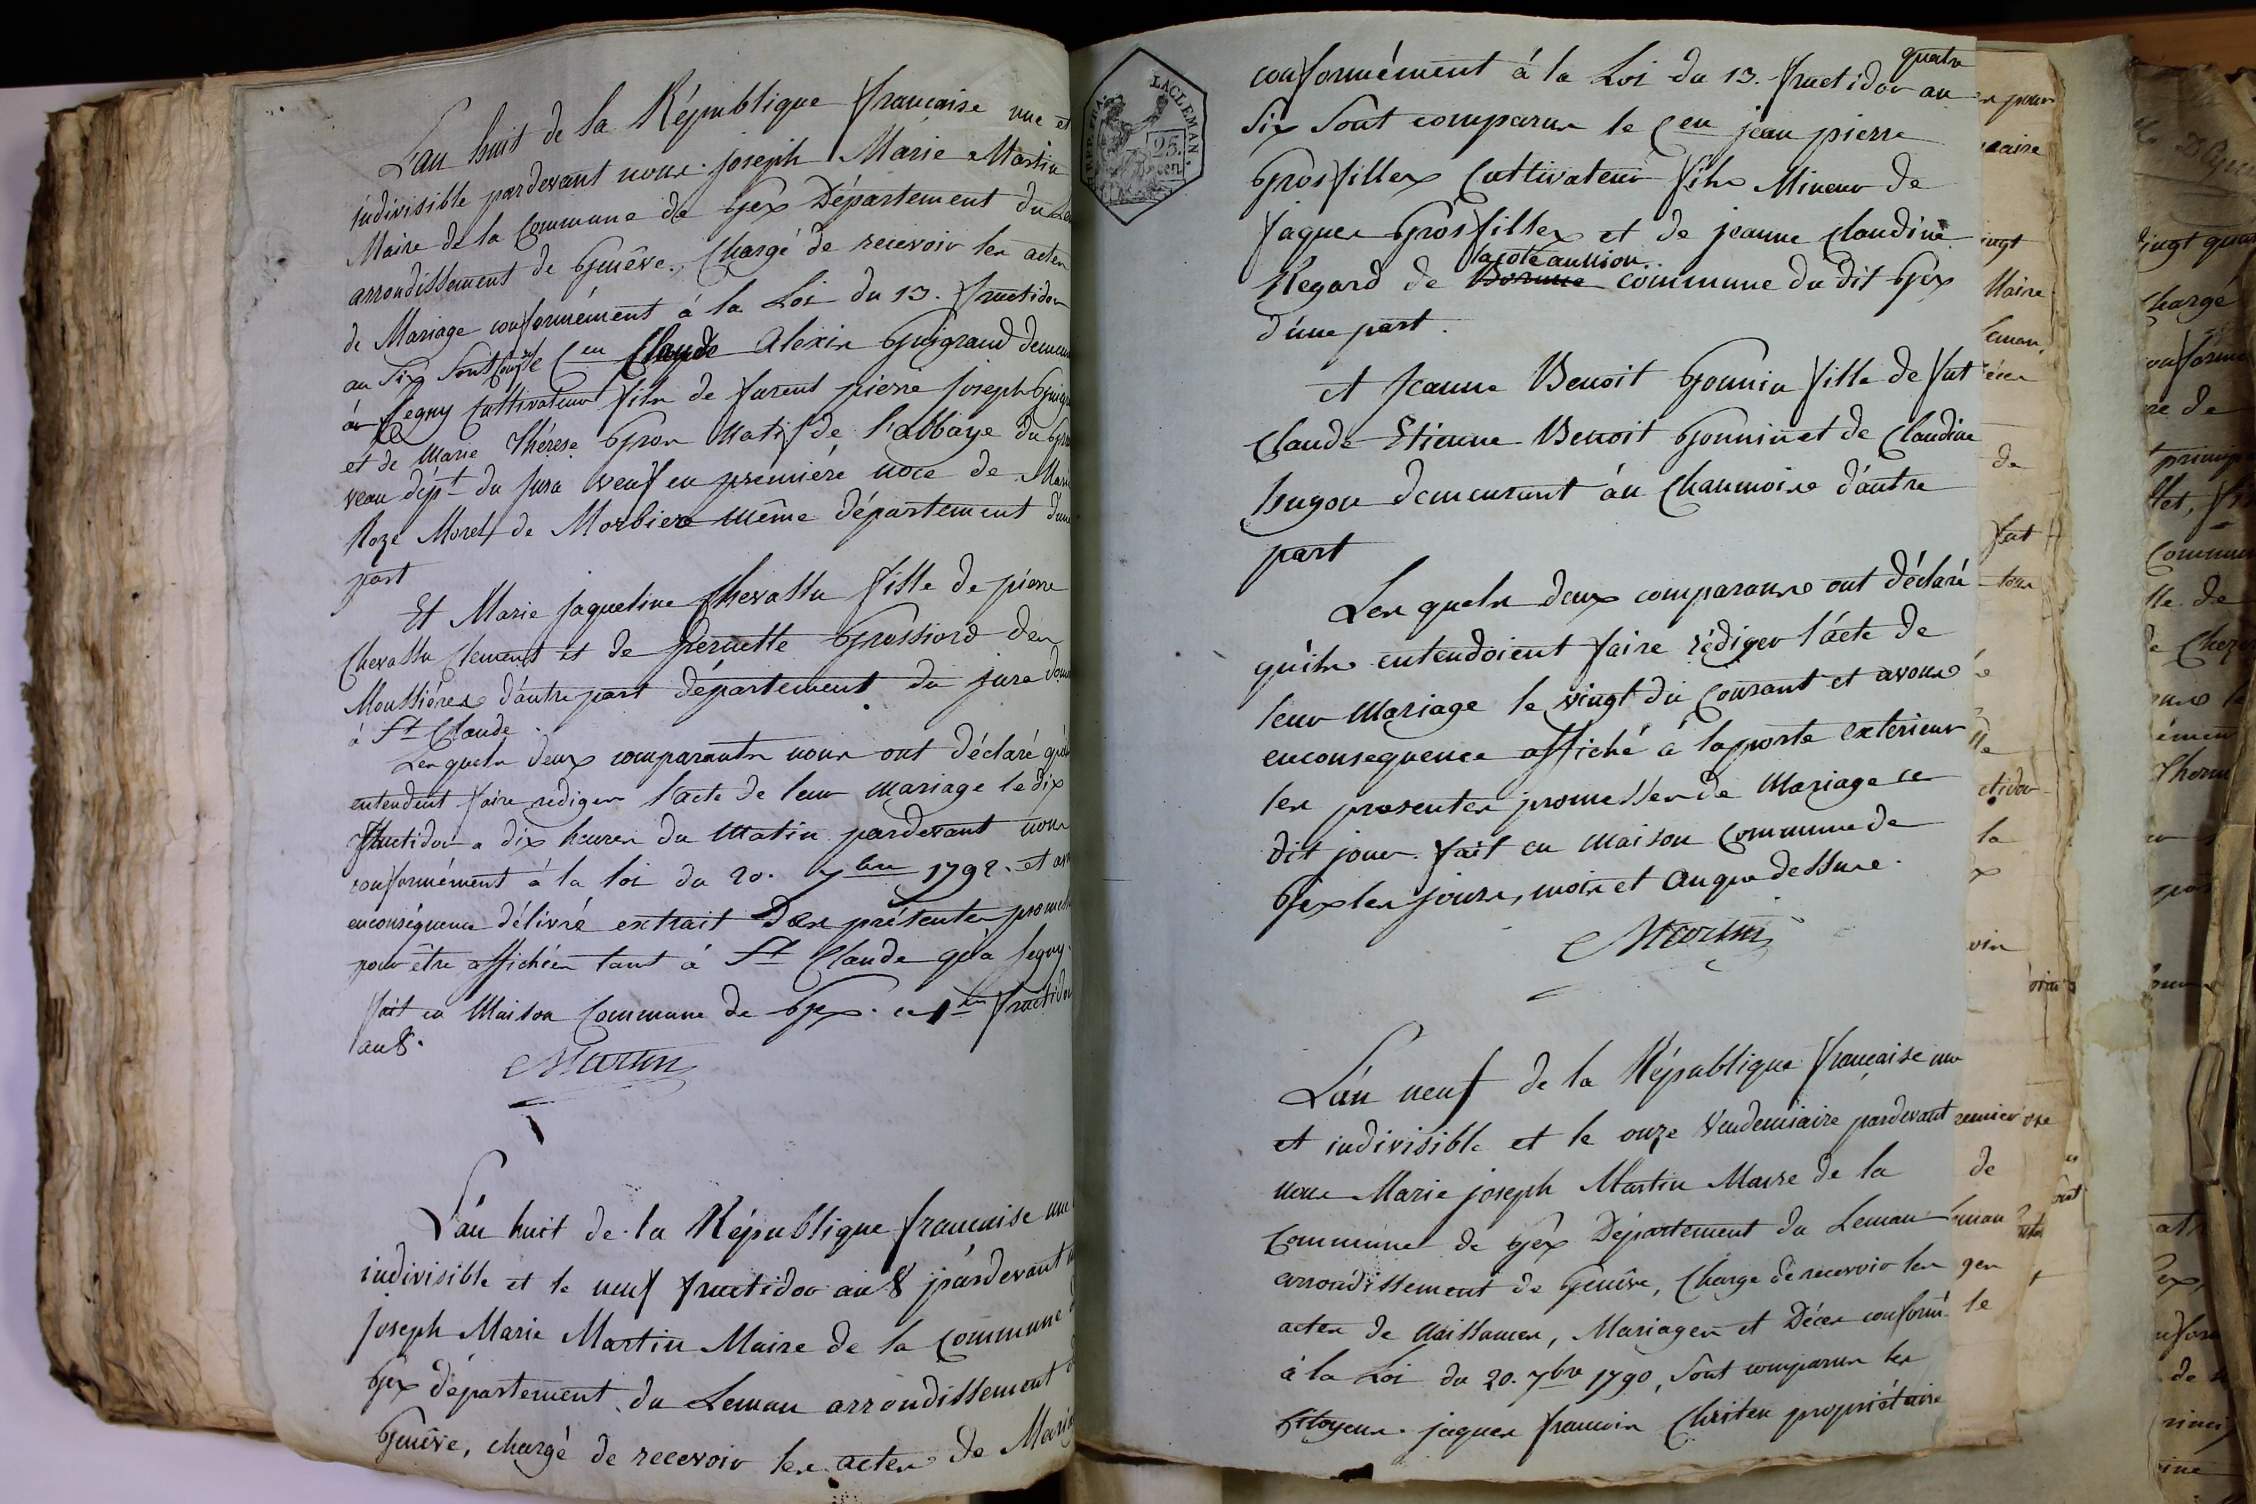 L'an huit de la République française une et
indivisible pardevant nous joseph Marie Martin
Maire de la Commune de Gex Département du Le
arrondissement de Genêve, Chargé de recevoir les actes
de Mariage conformément à la Loi du 13. fructidor
an Six Sont comp. le Cen Claude Alexis Guigrand demeur
à Segny Cultivateur fils de furent pierre joseph Guigr
et de Marie Thérèse Gros Natif de l'abbaye du Gran
veau dépt. du Jura veuf en première noce de Mari
Roze Morel de Morbiers même département d'une
part
Et Marie Jaqueline Chevassu fille de pierre
Chevassu Clement et de pernette Grossiord des
Moussières d'autre part département du jura dom
à St. Claude.
Lesquels deux comparants nous ont déclaré qu'ils
entendent faire rediger l'acte de leur mariage le dix
fructidor a dix heures du Matin pardevant nous
conformément à la loi du 20. 7bre 1792. et av
enconséquence délivré extrait des présentes prome
pour être affichées tant à St. Claude qu'à Segny.
fait en Maison Commune de Gex. ce 1er fructidor
an 8.
Martin
L'an huit de la République francaise une
indivisible et le neuf fructidor an 8 pardevant
joseph Marie Martin Maire de la Commune
Gex département du Leman arrondissement
Genêve, chargé de recevoir les actes de Maria
LAC LEMAN.
25.
cen
quatre
conformément à la Loi du 13. fructidor an
Six Sont comparus le Cen jean pierre
Grosfillex Cultivateur fils Mineur de
Jaques Grosfillex et de jeanne Claudine
lacoteaunion
Regard de commune du dit Gex
d'une part.
et Jeanne Benoit Gonnin fille de fut
Claude Etienne Benoit Gonnin et de Claudine
hugon demeurant au Chaumoire d'autre
part
Lesquels deux comparans ont déclaré
qu'ils entendoient faire rédiger l'acte de
leur Mariage le vingt du Courant et avons
enconsequence affiché à la porte exterieur
les presentes promesses de Mariage ce
dit jour. fait en Maison Commune de
Gex les jours, mois et an que dessus.
Martin
L'an neuf de la République française une
et indivisible et le onze Vendemiaire pardevant
nous Marie joseph Martin Maire de la
Commune de Gex Département du Leman
arrondissement de Genêve, Chargé de recevoir les
actes de Naissances, Mariages et Déces conform.
à la Loi du 20. 7bre 1790, Sont comparus les
Citoyens jaques francois Christen propriétaire